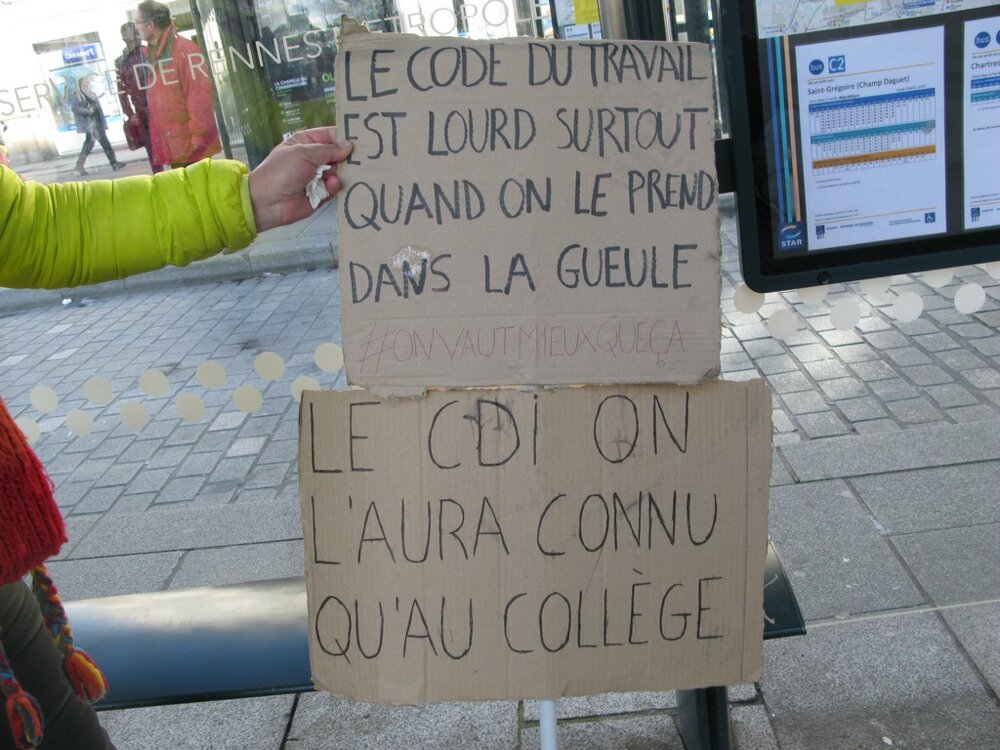 SERVICE DE RENNES MÉTROPOLE
LE CODE DU TRAVAIL
EST LOURD SURTOUT
QUAND ON LE PREND
DANS LA GUEULE
#ONVAUTMIEUXQUEÇA
LE CDI ON
L'AURA CONNU
QU'AU COLLÈGE
bus C2
Saint-Grégoire (Champ Daguet)
STAR
bus
Chartres